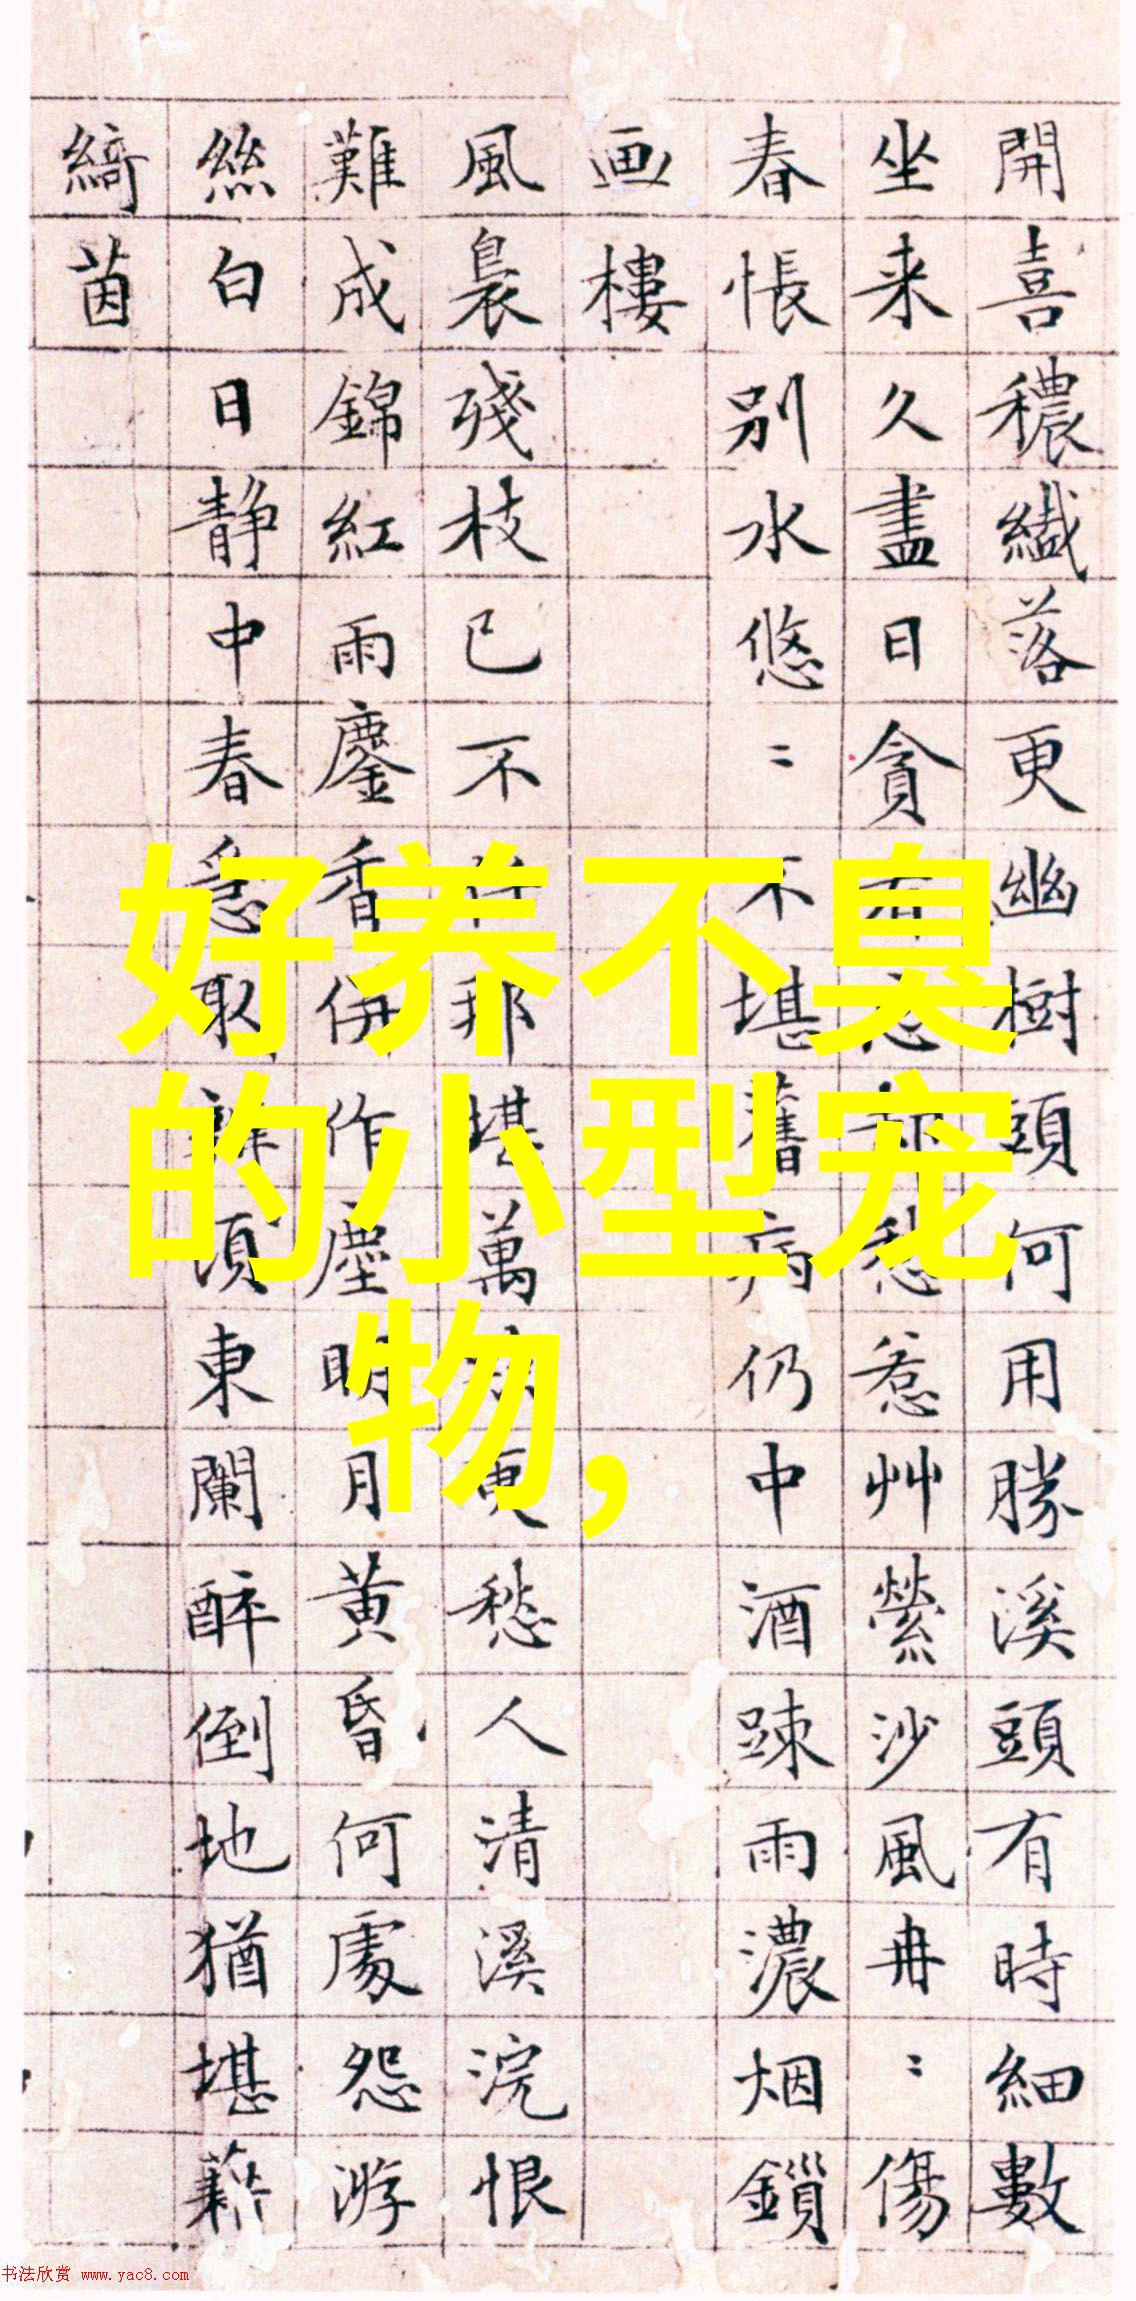 開喜穠纖落更幽樹頭何用勝溪頭有時細數
坐来久盡日貪愁惹艸縈沙風冉〻傷
春悵別水悠〻不堪舊病仍中酒踈雨濃烟鎖
画樓
風裊殘枝已不任那堪萬更愁人清溪浣恨
難成錦紅雨鏖香併作塵明月黄昏何處怨游
絲白日静中春急取須東闌醉倒地猶堪藉
綺茵
好养不臭
的小型宠
物,
书法欣赏 www.yac8.com